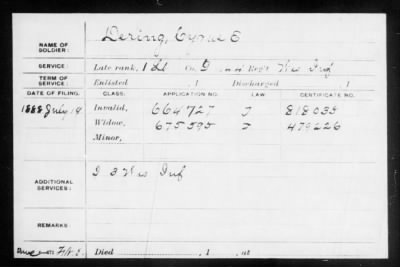 NAME OF SOLDIER: Dering, Cyrus E
SERVICE: Late rank, 1 Lt Co. G, 44 Reg't Wis Inf
TERM OF SERVICE: Enlisted , 1 Discharged , 1
DATE OF FILING. CLASS. APPLICATION NO. LAW. CERTIFICATE NO.
1888 July 19 Invalid, 664727 818035
Widow, 675595 479226
Minor,
ADDITIONAL SERVICES: 3 Wis Inf
REMARKS:
Died , 1 , at